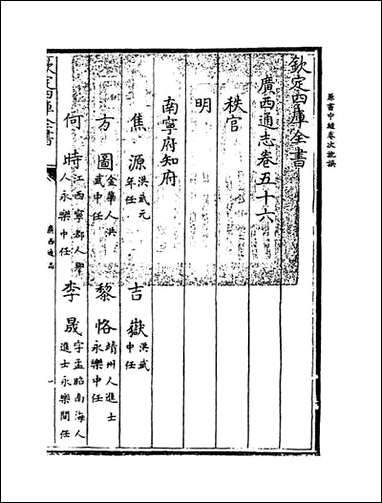 原書中縫卷次訛誤
欽定四庫全書
廣西通志卷五十六
秩官
明
南寧府知府
焦源 洪武元年任 吉嶽 洪武中任
方圖 金華人洪武中任 黎恪 靖州人進士永樂中任
何時 江西寧都人 永樂中任 李晟 字孟昭南海人進士永樂間任
欽定四庫全書
廣西通志
一